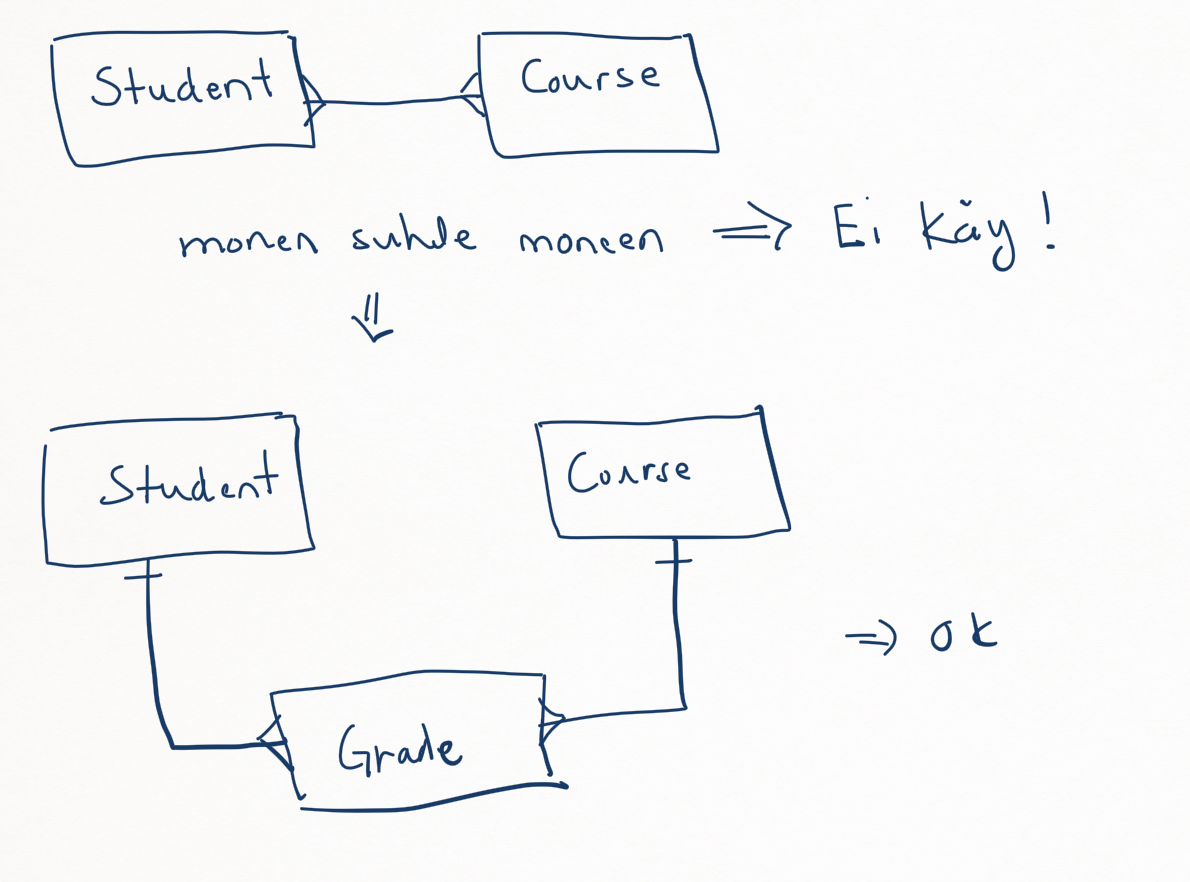 Student
Course
monen suhde moneen ⇒ Ei Käy!
⇓
Student
Course
⇒ ok
Grade